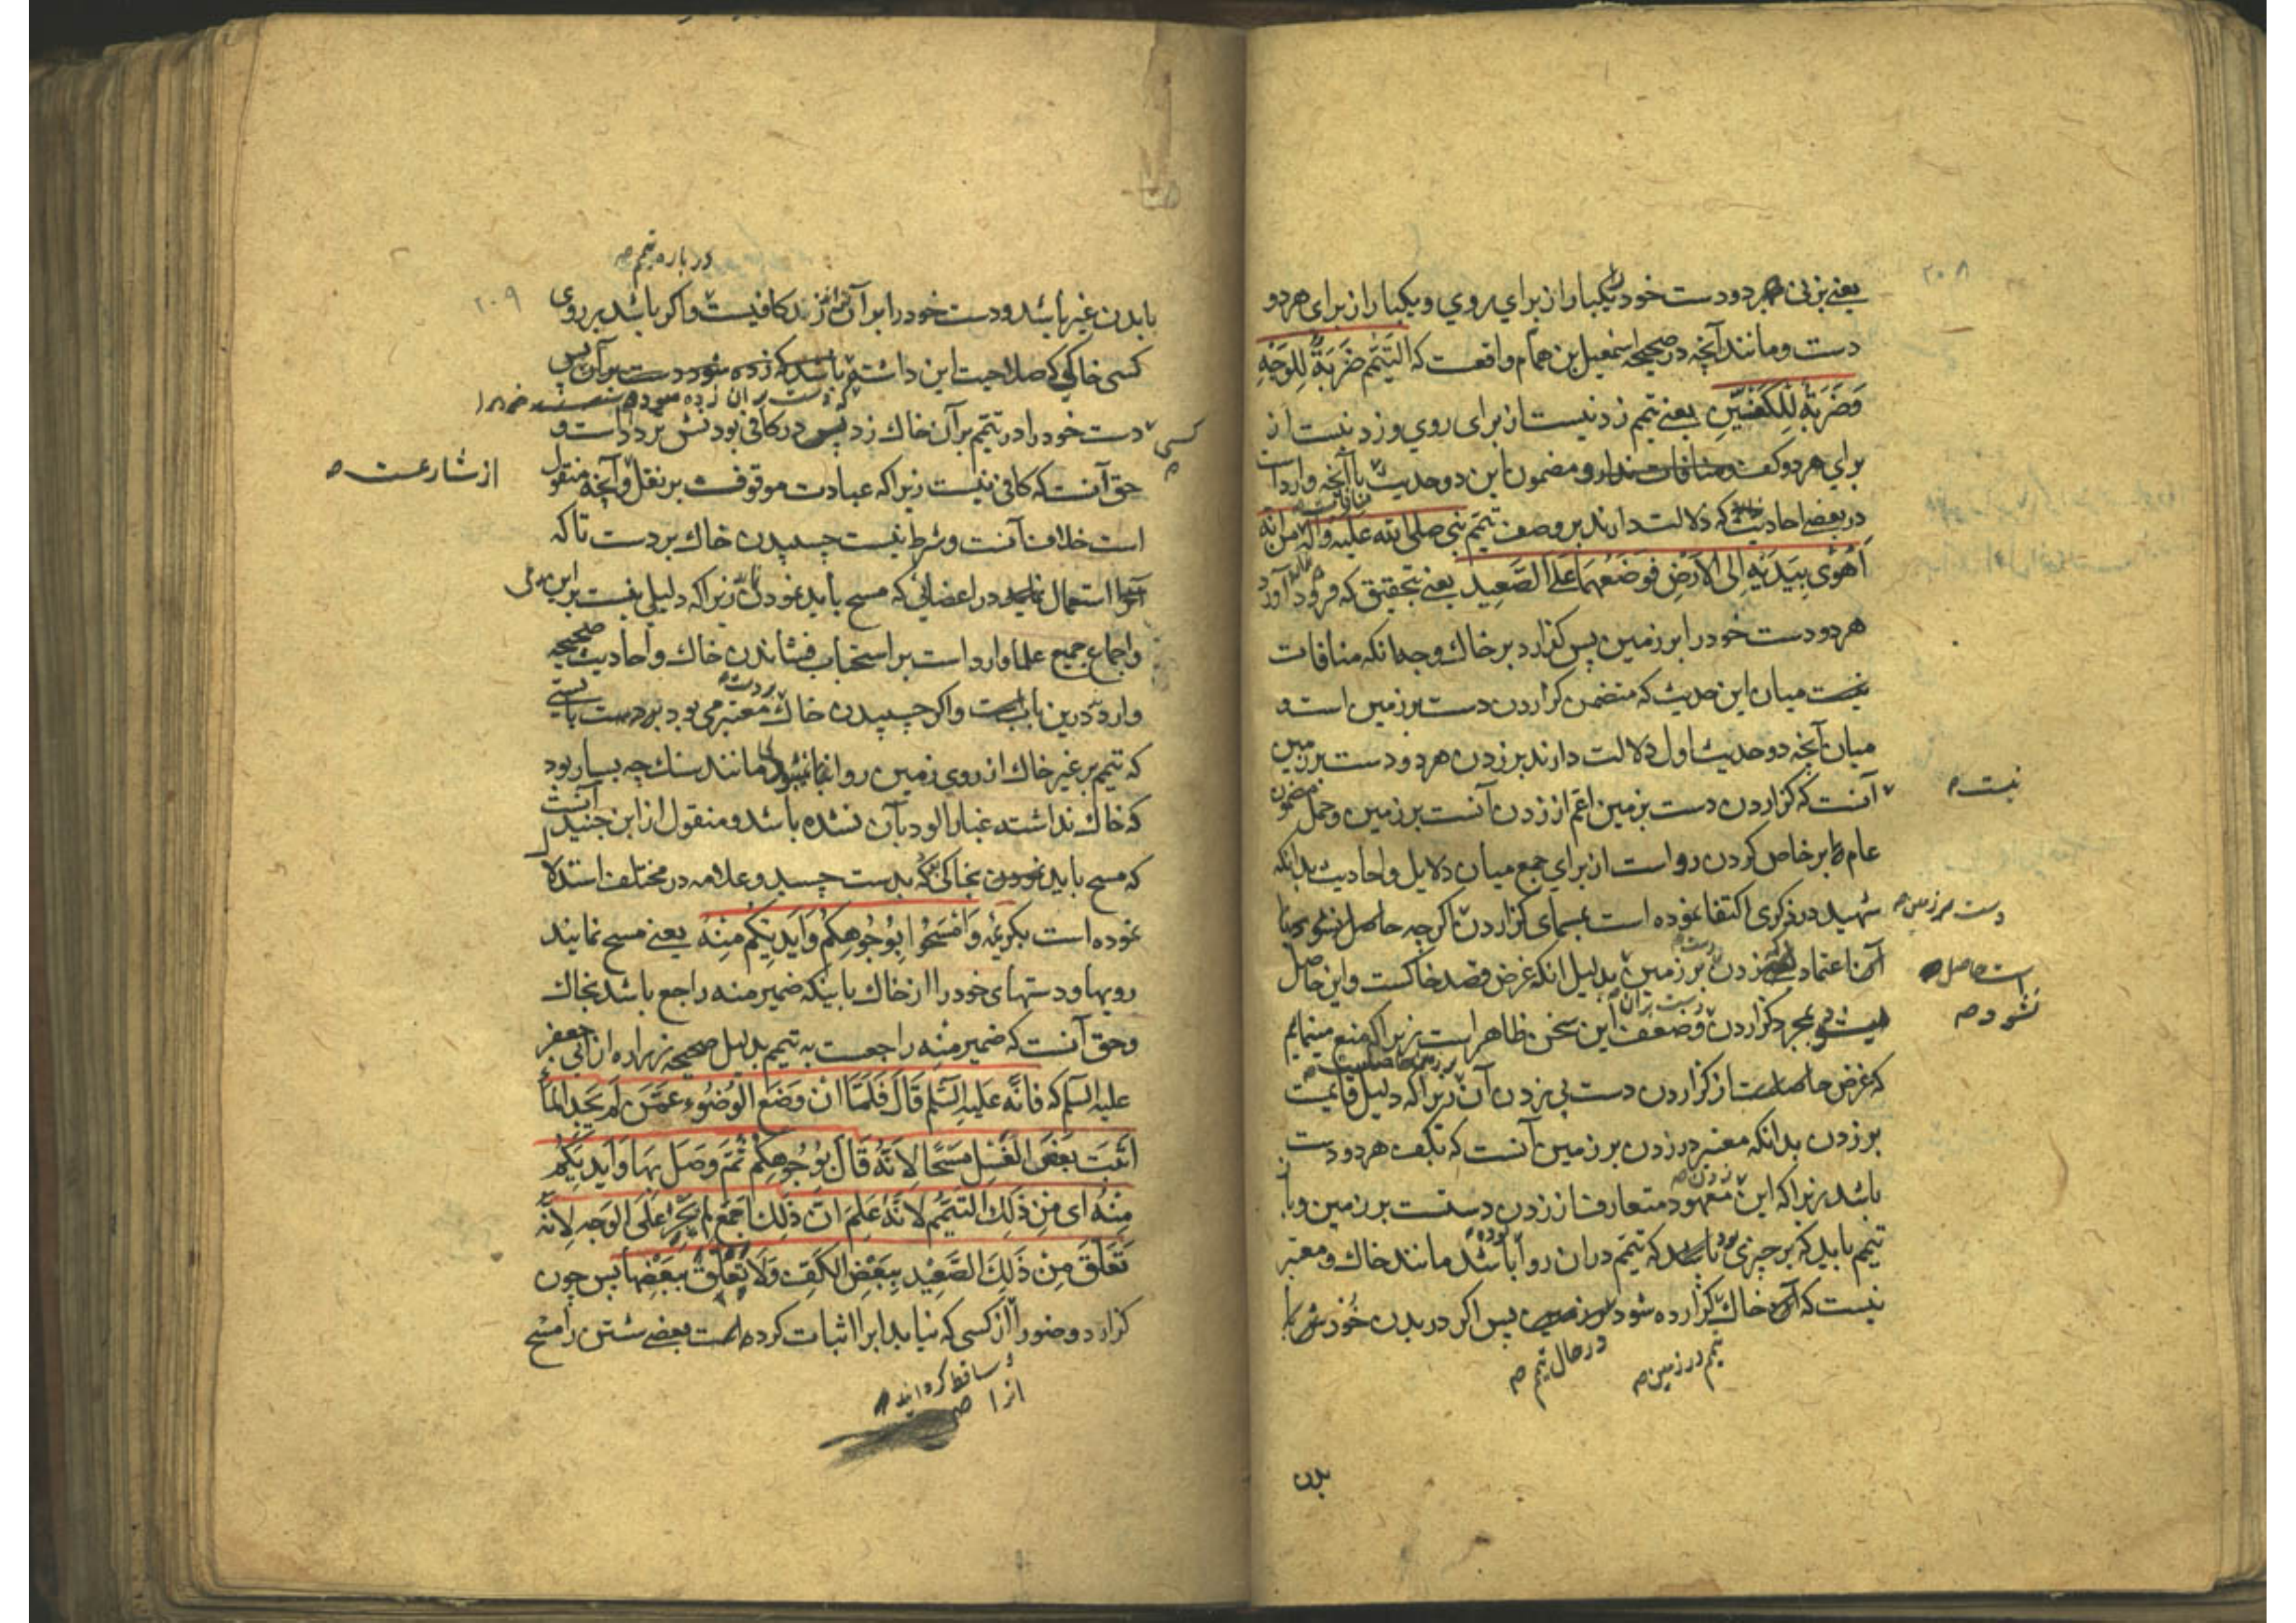 ۲۰۸
یعنے بزنی هر دو دست خود یکبار از برای روی و یکبار از برای هر دو
دست و مانند آنچه در صحیحه اسمعیل بن همام واقعست که التیمم ضَربَةٌ لِلوَجْهِ
وَضَربَةٌ لِلکَفَّیْنِ یعنے تیمم زدنیست از برای روی و زدنیست از
برای هر دو کف و منافات ندارد مضمون این دو حدیث با آنچه وارد است
در بعضے احادیث که دلالت دارند بر وصف تیمم نبی صلی الله علیه وآله من انه
اَهْوٰی بِیَدَیْهِ اِلَی الاَرْضِ فَوَضَعَهُمَا عَلَی الصَّعِیدِ یعنے بتحقیق که فرود آورد
هر دو دست خود را بر زمین پس گزارد بر خاک وجه انکه منافات
نیست میان این حدیث که متضمن گزاردن دست بر زمین است و
میان آنچه دو حدیث اول دلالت دارند بر زدن هر دو دست بر زمین
آنست که گزاردن دست بزمین اعم از زدن آنست بر زمین و حمل مضمون
نیست
عام بر خاص کردن رواست از برای جمع میان دلایل و احادیث بدانکه
شهید در ذکری اکتفا نموده است بمسمای گزاردن اگرچه حاصل
دست بر زمین
آن اعتماد زدن بر زمین بدلیل انکه غرض قصد خاکست و این حاصل
است حاصل
نشود
میشود بمجرد گزاردن و ضعف این سخن ظاهر است زیرا که منع مینمایم
که غرض حاصل است از گزاردن دست بی زدن آن زیرا که دلیل قایمست
بر زدن بدانکه معتبر در زدن بر زمین آنست که بکف هر دو دست
باشد زیرا که این معهود متعارف از زدن دستست بر زمین و با
تیمم باید که بر چیزی باشد که تیمم دران روا باشد مانند خاک و معتبر
نیست که آن خاک گزارده شود بر زمین پس اگر در بدن خودش یا
تیمم در زمین
در حال تیمم
بدن
۲۰۹
درباره تیمم
با بدن غیر باشد و دست خود را بر آن زند کافیست و اگر باشد بر روی
کسی خاکی که صلاحیت این داشته باشد که زده شود دست بر آن پس
کسی
دست خود را در تیمم بر آن خاک زد پس در کافی بودنش تردد است و
حق آنست که کافی نیست زیرا که عبادت موقوفست بر نقل و آنچه منقول
از شارعست
است خلاف آنست و شرط نیست چسپیدن خاک بر دست تا که
استعمال نماید در اعضائی که مسح باید نمودن زیرا که دلیلی نیست بر این مدعی
و اجماع جمیع علما وارد است بر استحباب فشاندن خاک و احادیث صحیحه
وارد درین بابست و اگر چسپیدن خاک معتبر می بود بر دست بایستے
که تیمم بر غیر خاک از روی زمین روا نباشد مانند سنک چه بسیار بود
که خاک نداشته غبارالود بآن نشده باشد و منقول از ابن جنید آنست
که مسح باید نمودن بخاکی که بدست چسپد و علامه در مختلف استدلال
نموده است بکریمه وَامْسَحُوا بِوُجُوهِکُمْ وَاَیْدِیکُمْ مِنْهُ یعنے مسح نمایند
رویها و دستهای خود را از خاک باینکه ضمیر منه راجع باشد بخاک
و حق آنست که ضمیر منه راجعست به تیمم بدلیل صحیحه زراره از ابی جعفر
علیه السلم که فَاِنَّه عَلیهِ السَّلم قَالَ فَلَمَّا اَنْ وَضَعَ الْوُضُوءَ عَمَّنْ لَمْ یَجِدِ المَاءَ
اَثْبَتَ بَعْضَ الْغَسْلِ مَسْحًا لِاَنَّهُ قَالَ بِوُجُوهِکُمْ ثُمَّ وَصَلَ بِهَا وَاَیْدِیَکُمْ
مِنْهُ اَی مِنْ ذٰلِکَ التَّیَمُّمِ لِاَنَّهُ عَلِمَ اَنَّ ذٰلِکَ اَجْمَعَ لَمْ یَجْرِ عَلَی الوَجْهِ لِاَنَّهُ
تَعَلَّقَ مِنْ ذٰلِکَ الصَّعِیْدِ بِبَعْضِ الکَفِّ وَلَا تَعْلَقُ بِبَعْضِهَا پس چون
گزارد وضو را از کسی که نیابد اب را اثبات کرده است بعضے شستن را مسح
ساقط گردانید
انرا